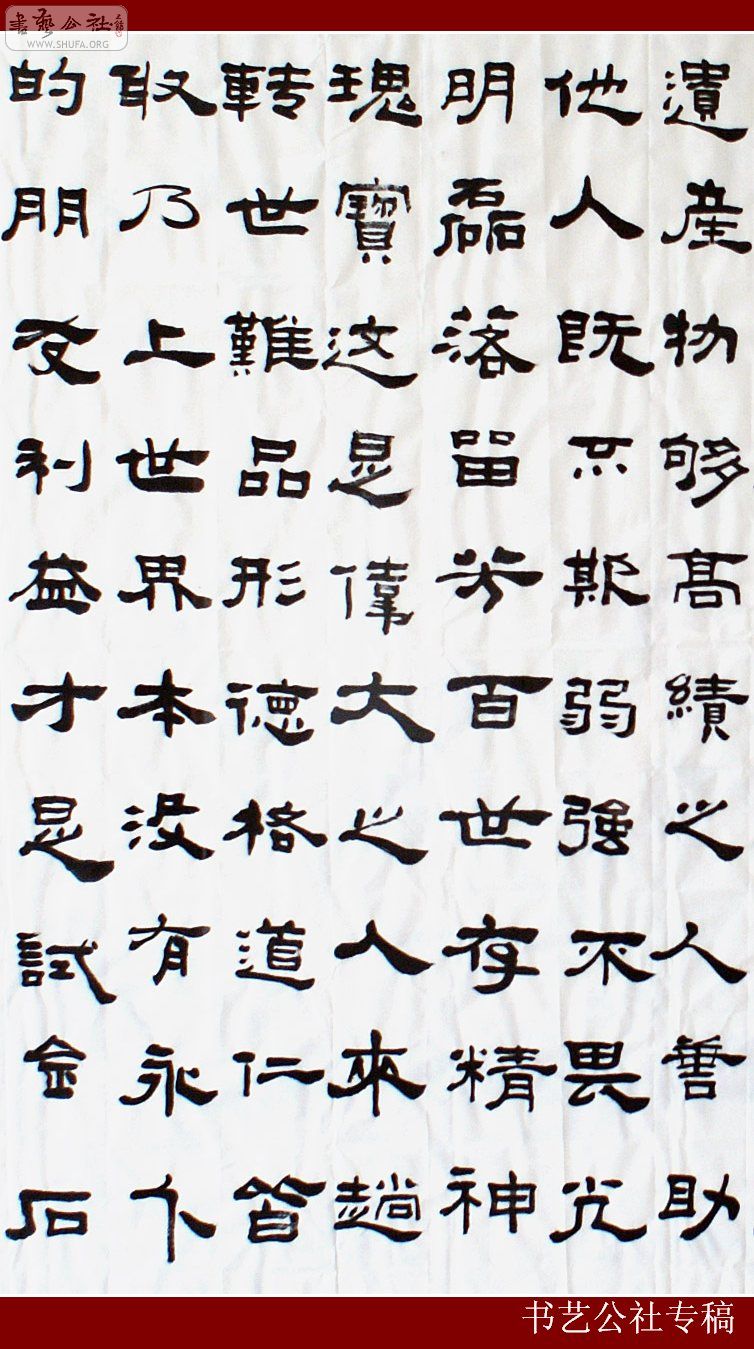 書藝公社
WWW.SHUFA.ORG
遺産物够高績之人善助
他人既不欺弱強不畏光
明磊落留芳百世存精神
瑰寶这是偉大之人來趟
轉世難品形德格道仁皆
敢乃上世界本没有永久
的朋友利益才是試金石
书艺公社专稿